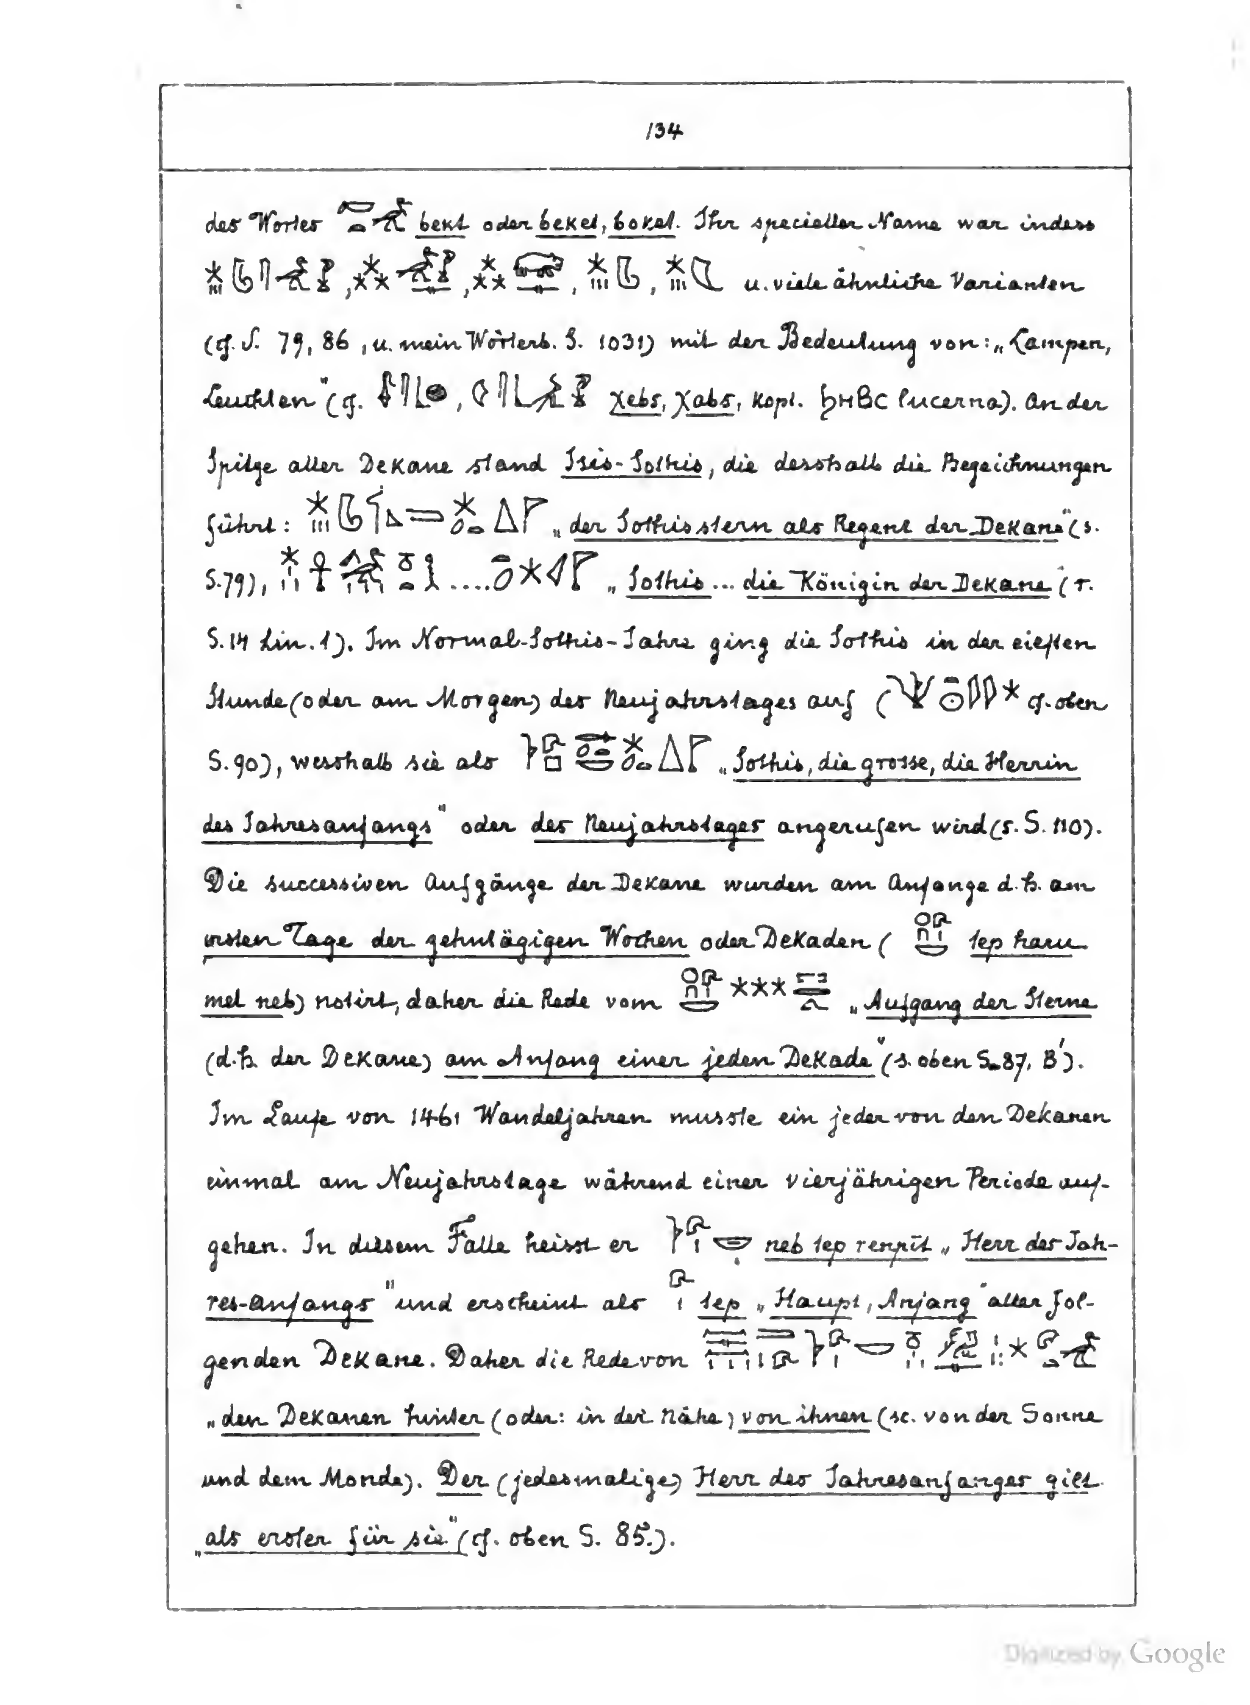 134
des Wortes bekt oder beket, boket. Ihr specieller Name war indess
, , , , u. viele ähnliche Varianten
(cf. S. 79, 86, u. mein Wörterb. S. 1031) mit der Bedeutung von: „Lampen,
Leuchten" (cf. , χebs, χabs, kopt. ϧⲏⲃⲥ lucerna). An der
Spitze aller Dekane stand Isis-Sothis, die desshalb die Bezeichnungen
führt: „der Sothisstern als Regent der Dekane" (s.
S. 79), .... „Sothis... die Königin der Dekane (s.
S. 14 Lin. 1). Im Normal-Sothis-Jahre ging die Sothis in der eilften
Stunde (oder am Morgen) des Neujahrstages auf ( cf. oben
S. 90), wesshalb sie als „Sothis, die grosse, die Herrin
des Jahresanfangs" oder des Neujahrstages angerufen wird (s. S. 110).
Die successiven Aufgänge der Dekane wurden am Anfange d. h. am
ersten Tage der zehntägigen Wochen oder Dekaden ( tep haru
met neb) notirt, daher die Rede vom „Aufgang der Sterne
(d. h. der Dekane) am Anfang einer jeden Dekade" (s. oben S. 87, B').
Im Laufe von 1461 Wandeljahren musste ein jeder von den Dekanen
einmal am Neujahrstage während einer vierjährigen Periode auf-
gehen. In diesem Falle heisst er neb tep renpit „Herr des Jah-
res-anfangs" und erscheint als tep „Haupt, Anfang" aller fol-
genden Dekane. Daher die Rede von
„den Dekanen hinter (oder: in der Nähe) von ihnen (sc. von der Sonne
und dem Monde). Der (jedesmalige) Herr des Jahresanfanges gilt
„als erster für sie" (cf. oben S. 85.).
Digitized by Google